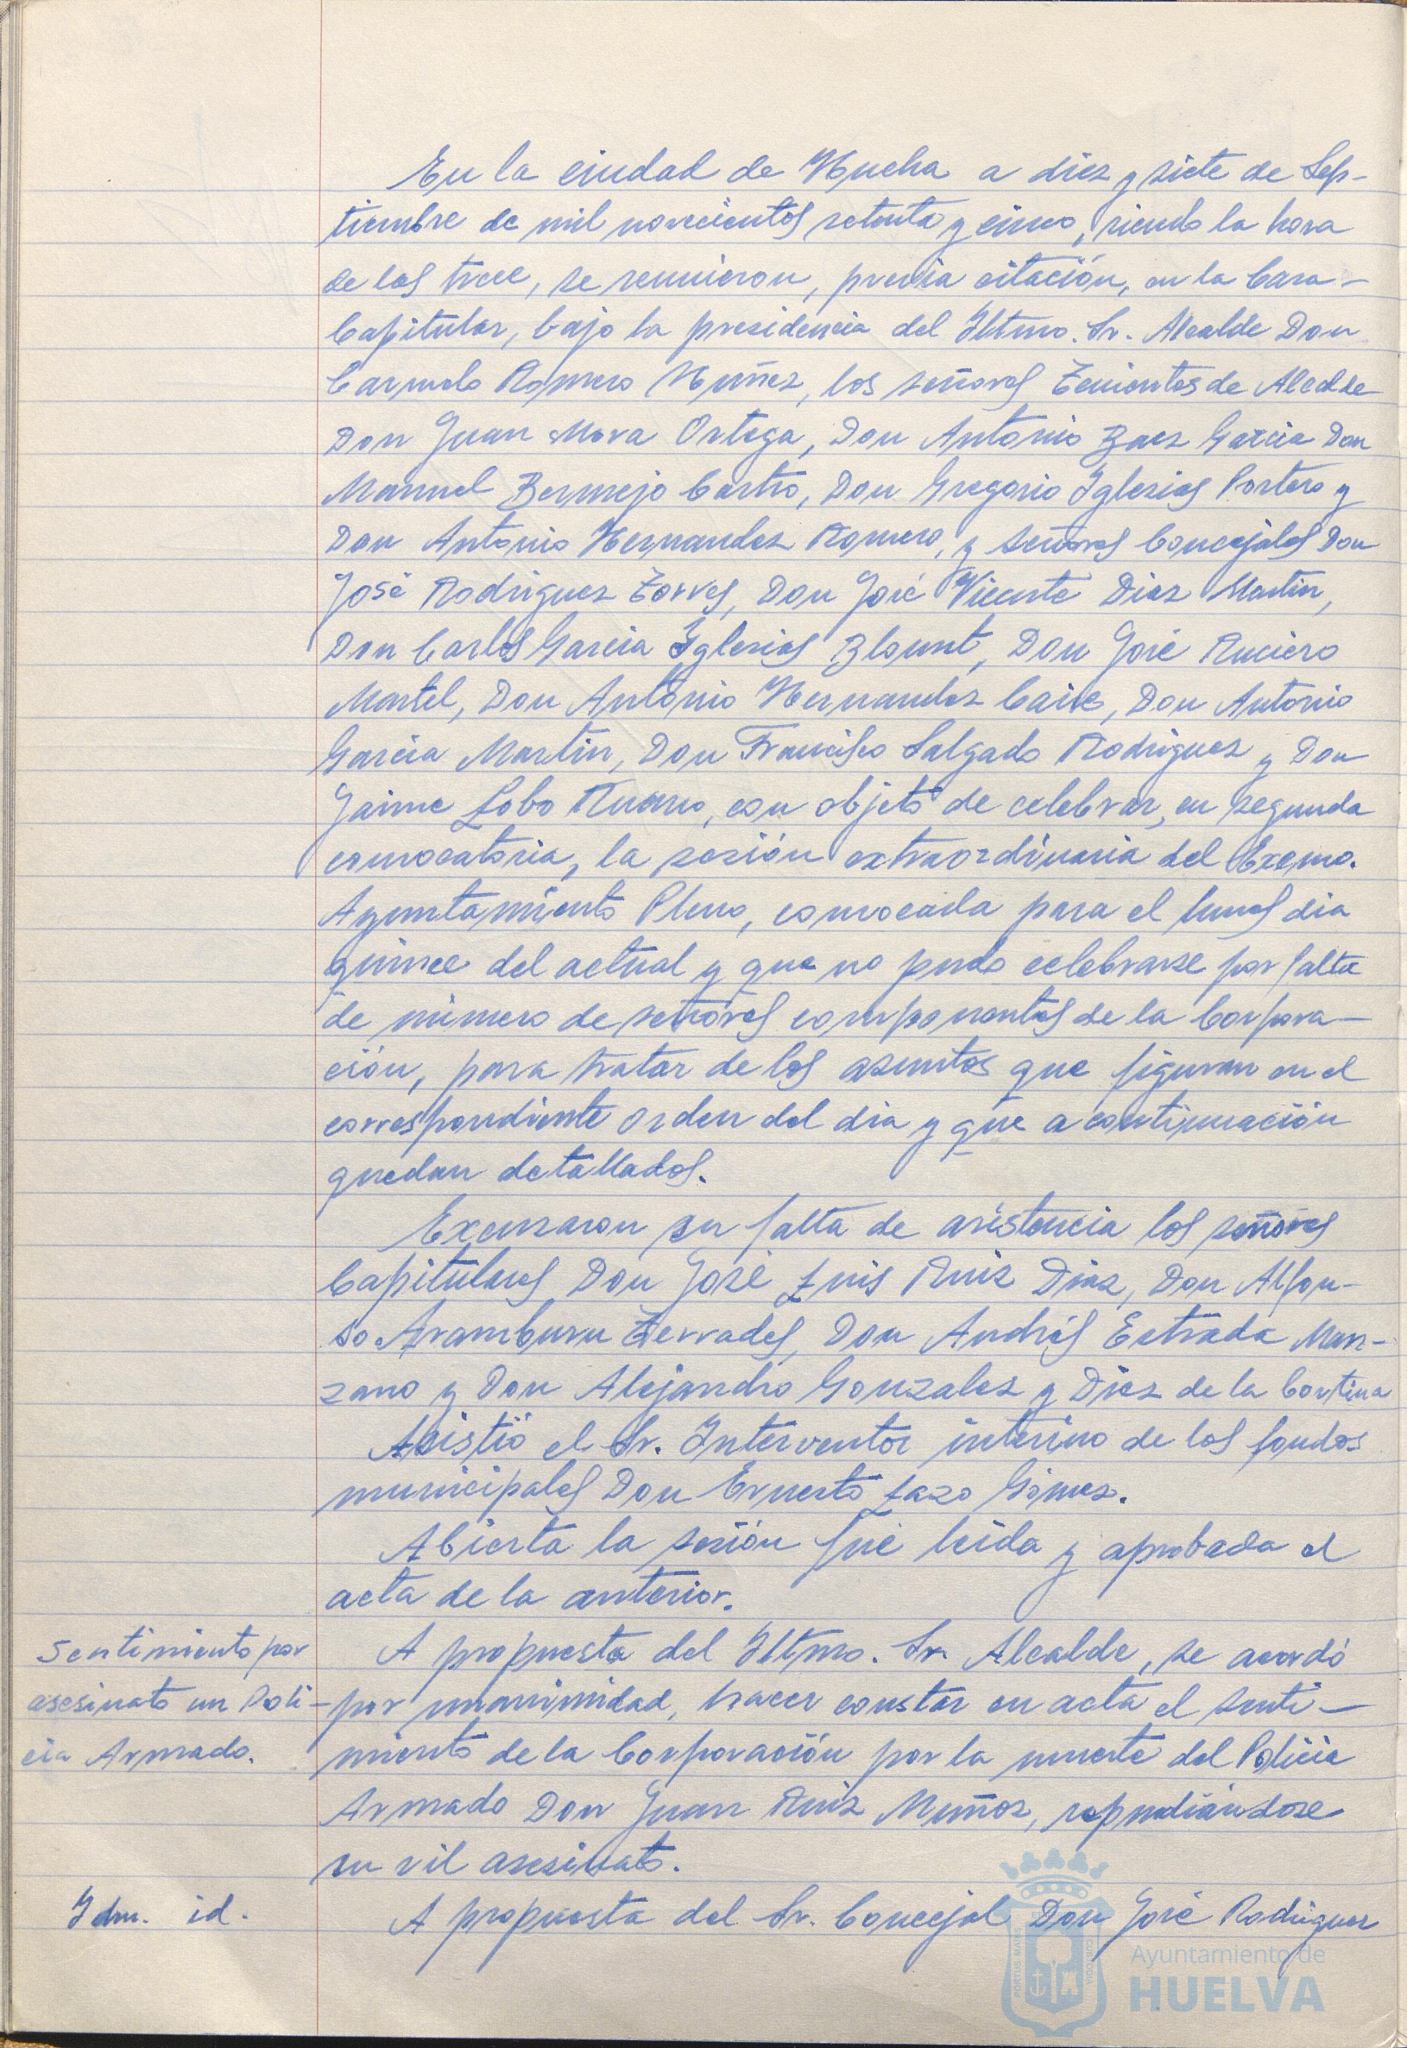 En la ciudad de Huelva a diez y siete de Sep-
tiembre de mil novecientos setenta y cinco, siendo la hora
de las trece, se reunieron, previa citación, en la Casa-
Capitular, bajo la presidencia del Iltmo. Sr. Alcalde Don
Carmelo Romero Nuñez, los señores Tenientes de Alcalde
Don Juan Mora Ortega, Don Antonio Baez Garcia Don
Manuel Bermejo Castro, Don Gregorio Iglesias Portero y
Don Antonio Hernandez Romero, y señores Concejales Don
José Rodriguez Torres, Don José Vicente Diaz Martin,
Don Carlos Garcia Iglesias Blount, Don José Ruciero
Martel, Don Antonio Hernandez Caire, Don Antonio
Garcia Martin, Don Francisco Salgado Rodriguez y Don
Jaime Lobo Ruano, con objeto de celebrar, en segunda
convocatoria, la sesión extraordinaria del Excmo.
Ayuntamiento Pleno, convocada para el lunes dia
quince del actual y que no pudo celebrarse por falta
de número de señores componentes de la Corpora-
ción, para tratar de los asuntos que figuran en el
correspondiente orden del dia y que a continuación
quedan detallados.
Excusaron su falta de asistencia los señores
Capitulares Don José Luis Ruiz Diaz, Don Alfon-
so Aramburu Terrades, Don Andrés Estrada Man-
zano y Don Alejandro Gonzalez y Diez de la Cortina
Asistió el Sr. Interventor interino de los fondos
municipales Don Ernesto Lazo Gómez.
Abierta la sesión fué leida y aprobada el
acta de la anterior.
Sentimiento por
asesinato un Poli-
cia Armado.
A propuesta del Iltmo. Sr. Alcalde, se acordó
por unanimidad, hacer constar en acta el senti-
miento de la Corporación por la muerte del Policia
Armado Don Juan Ruiz Muñoz, repudiándose
su vil asesinato.
Idm. id.
A propuesta del Sr. Concejal Don José Rodriguez
Ayuntamiento de
HUELVA